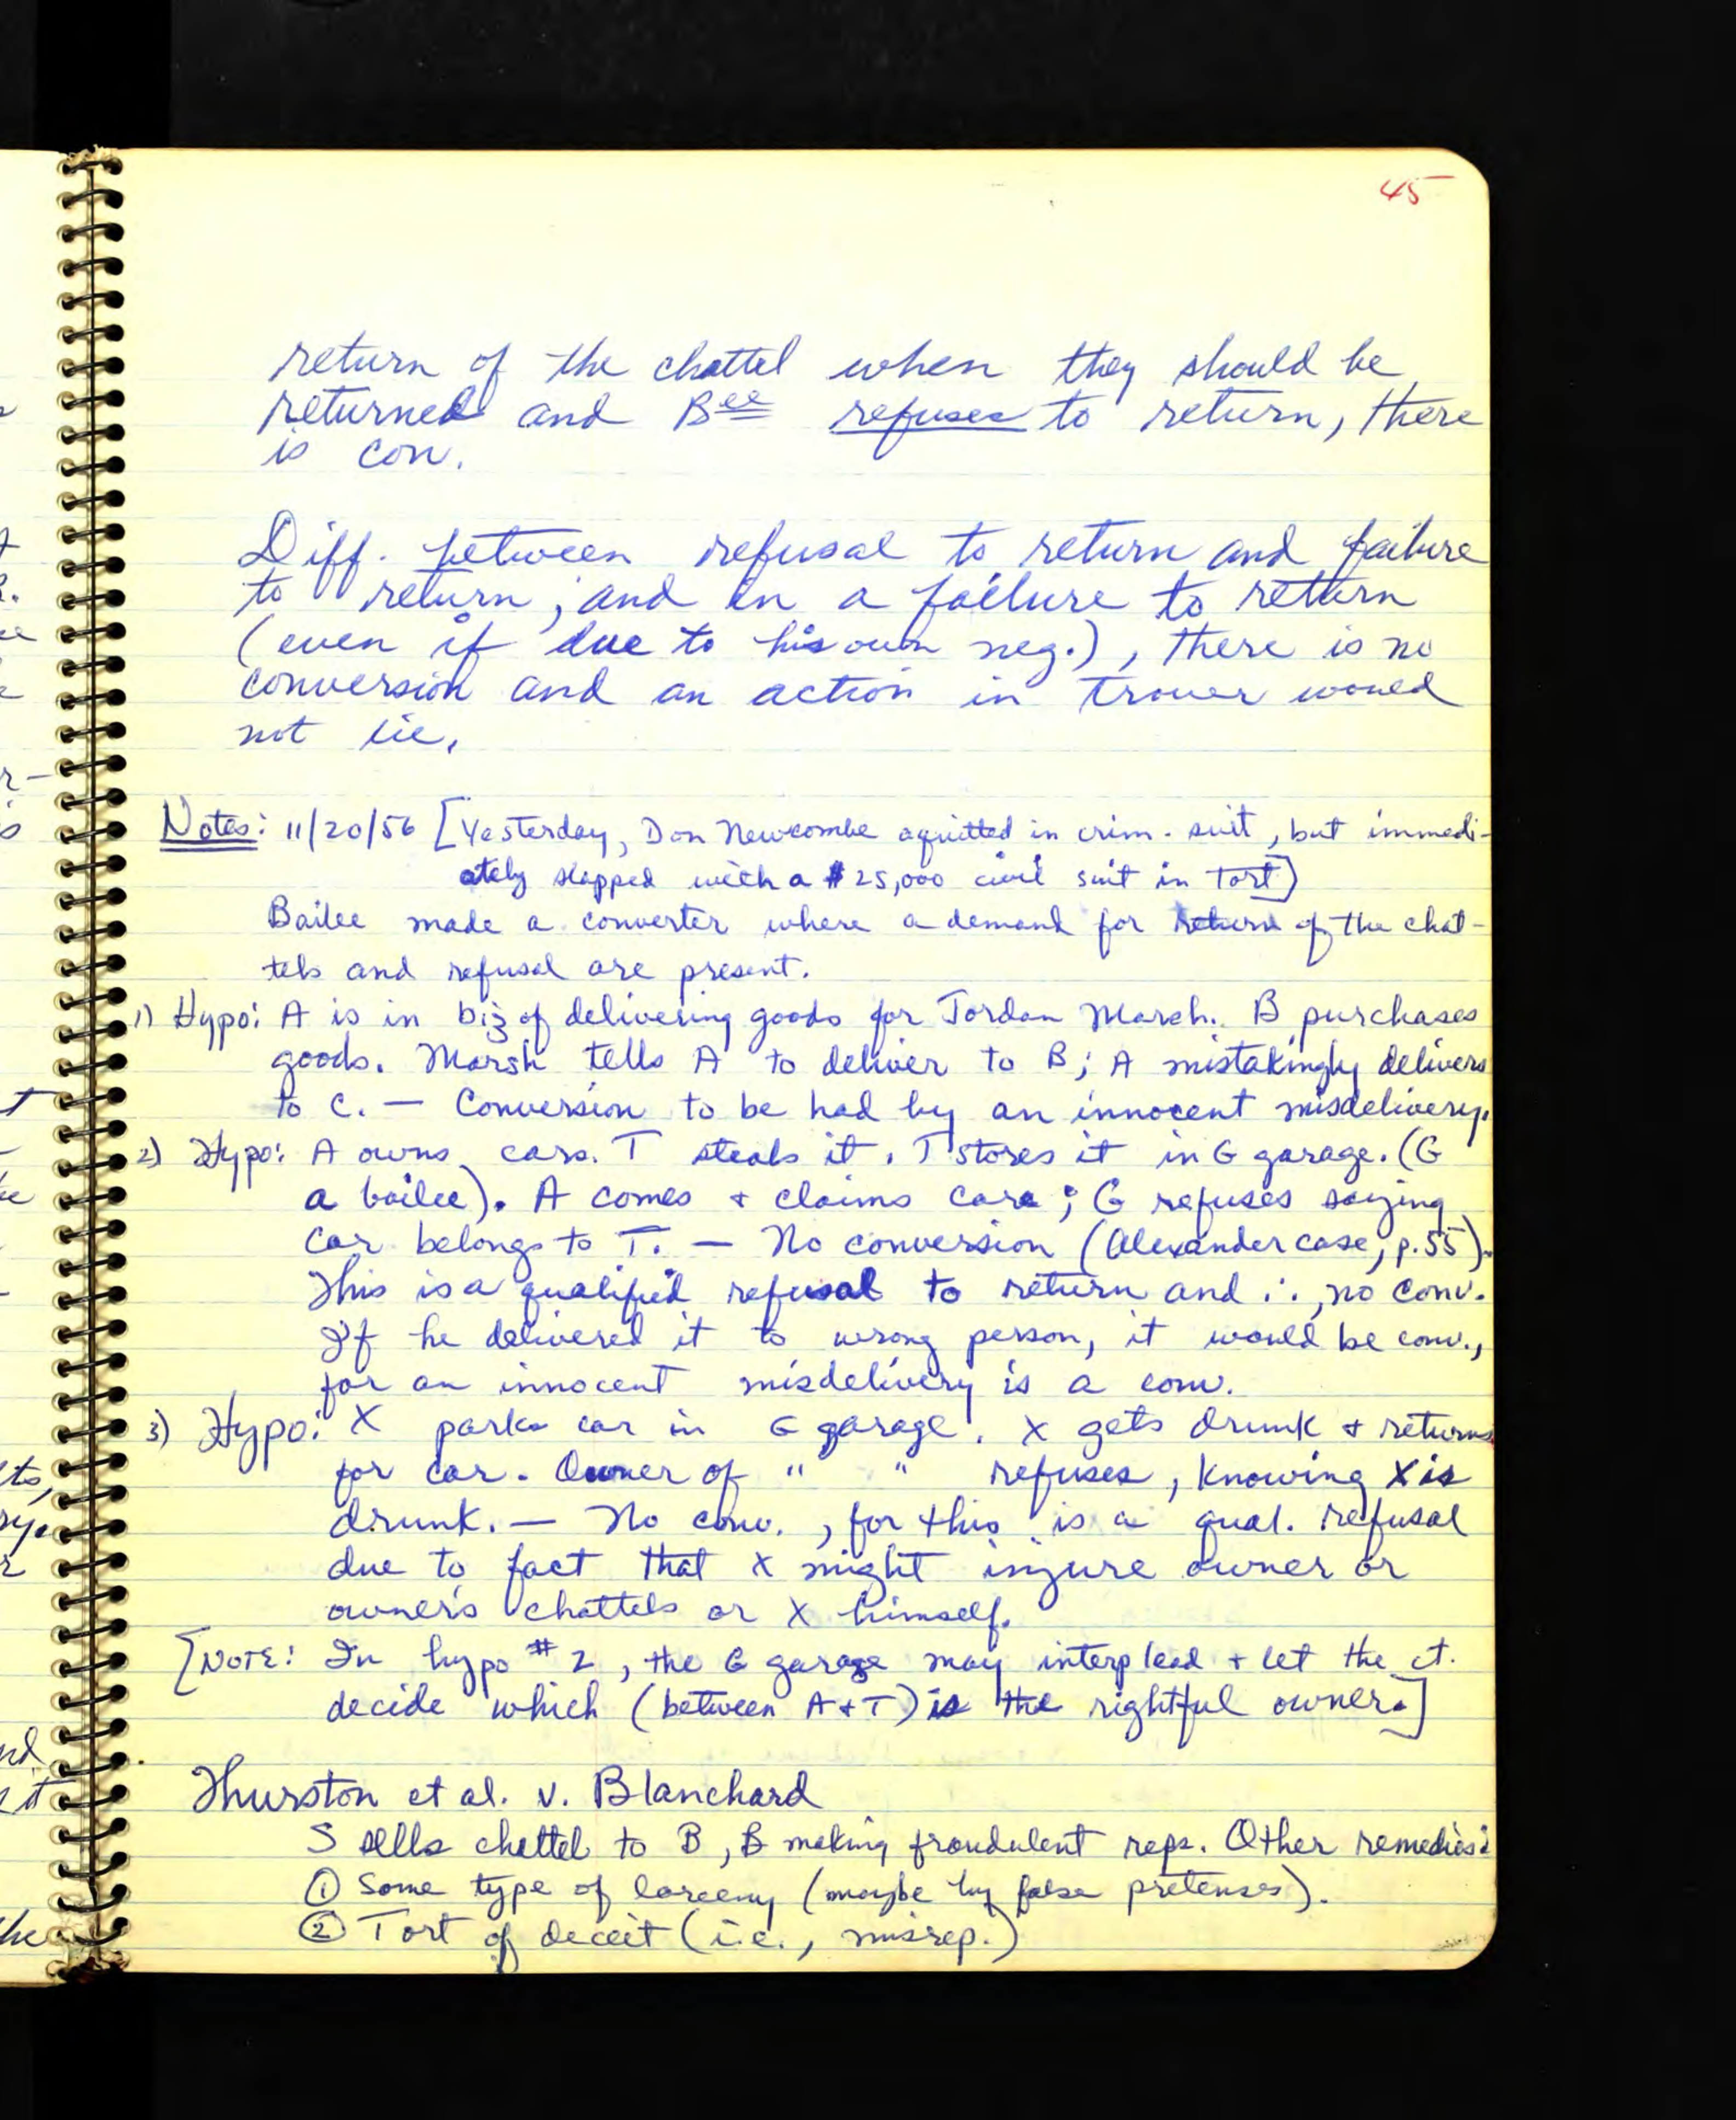 45
return of the chattel when they should be
returned and Bee refuses to return, there
is con.
Diff. between refusal to return and failure
to return; and in a failure to return
(even if due to his own neg.), there is no
conversion and an action in trover would
not lie.
Notes: 11/20/56 [Yesterday, Don Newcombe aquitted in crim. suit, but immedi-
ately slapped with a $25,000 civil suit in Tort]
Bailee made a converter where a demand for return of the chat-
tels and refusal are present.
1) Hypo: A is in biz of delivering goods for Jordan Marsh. B purchases
goods. Marsh tells A to deliver to B; A mistakingly delivers
to C. — Conversion to be had by an innocent misdelivery.
2) Hypo: A owns cars. T steals it. T stores it in G garage. (G
a bailee). A comes + claims car; G refuses saying
car belongs to T. — No conversion (Alexander case, p.55).
This is a qualified refusal to return and ∴, no conv.
If he delivered it to wrong person, it would be conv.,
for an innocent misdelivery is a conv.
3) Hypo: X parks car in G garage. X gets drunk + returns
for car. Owner of " " refuses, knowing X is
drunk. — No conv., for this is a qual. refusal
due to fact that X might injure owner or
owner's chattels or X himself.
[NOTE: In hypo #2, the G garage may interplead + let the ct.
decide which (between A + T) is the rightful owner.]
Thurston et al. v. Blanchard
S sells chattel to B, B making fraudulent reps. Other remedies:
① Some type of larceny (maybe by false pretenses).
② Tort of deceit (i.e., misrep.)